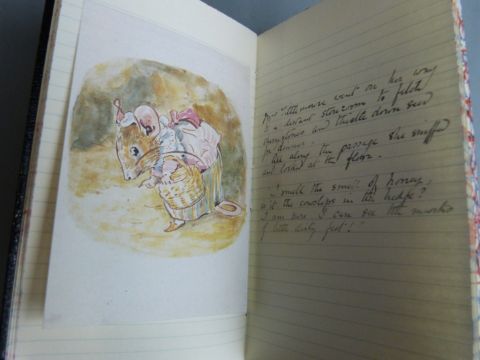 Mrs Tittlemouse went on her way
to a distant storeroom to fetch
cherrystones and thistle down seed
for dinner.
All along the passage she sniffed
and looked at the floor.
"I smell the smell of honey,
is it the cowslips in the hedge?
I am sure I can see the marks
of little dirty feet!"